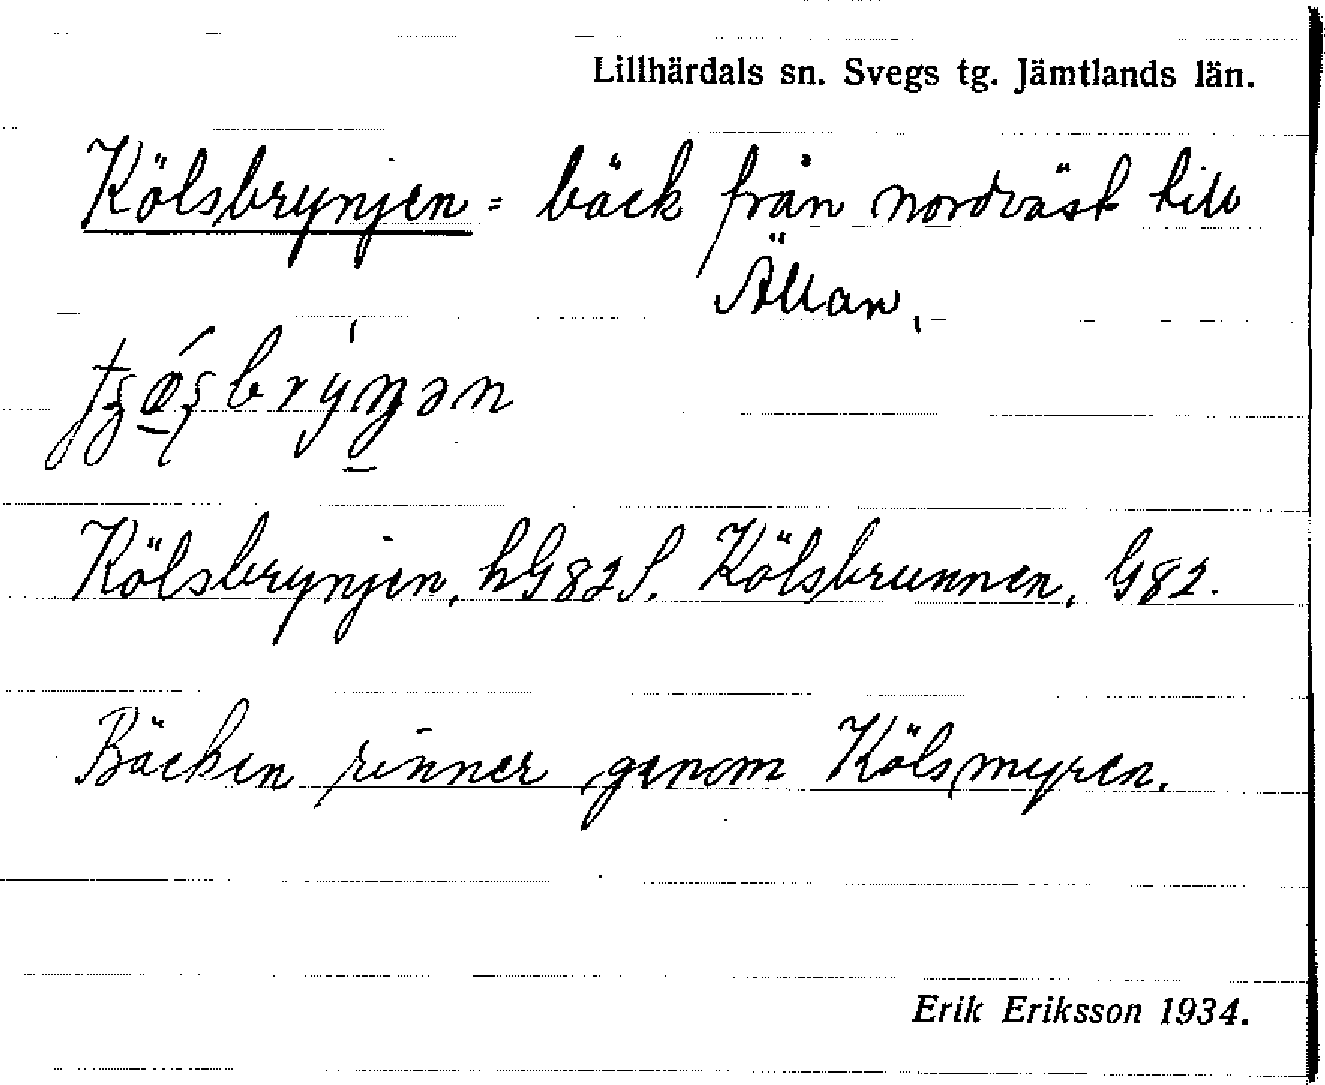 Lillhärdals sn. Svegs tg. Jämtlands län.
Kölsbrynjen = bäck från nordväst till
Ällan.
Kölsbrynjen, hG82S. Kölsbrunnen, G82.
Bäcken rinner genom Kölsmyren.
Erik Eriksson 1934.